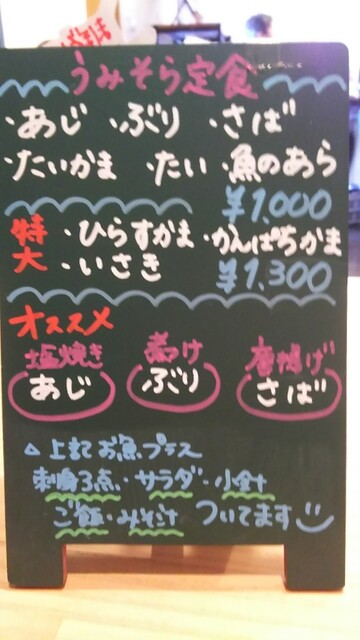 うみそら定食
・あじ ・ぶり ・さば
・たいかま ・たい ・魚のあら
¥1,000
特大 ・ひらすかま ・かんぱちかま
・いさき ¥1,300
オススメ
塩焼き 煮つけ 唐揚げ
あじ ぶり さば
△上記お魚プラス
刺身3点・サラダ・小鉢
ご飯・みそ汁 ついてます